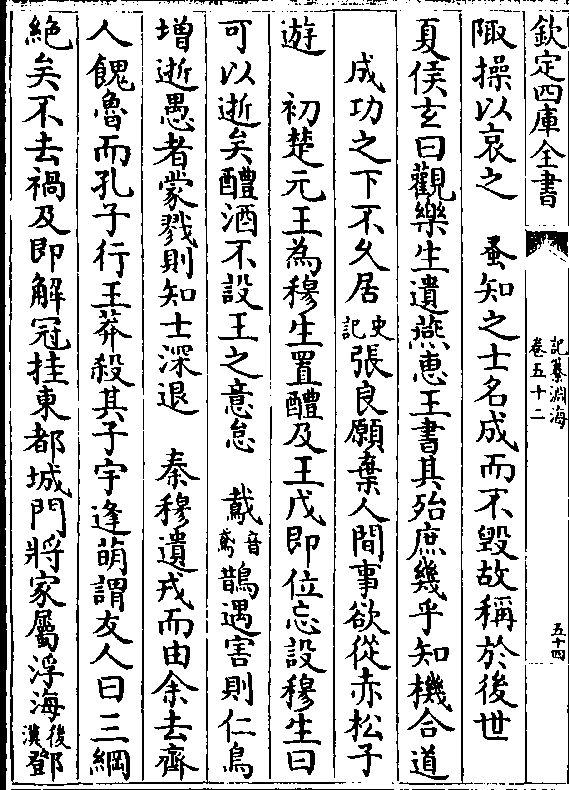 欽定四庫全書
記纂淵海
卷五十二
五十四
陬操以哀之　蚤知之士名成而不毀故稱於後世
夏侯玄曰觀樂生遺燕惠王書其殆庶幾乎知機合道
成功之下不久居史記張良願棄人間事欲從赤松子
遊　初楚元王為穆生置醴及王戊即位忘設穆生曰
可以逝矣醴酒不設王之意怠　䳒音鳶鵲遇害則仁鳥
增逝愚者蒙戮則知士深退　秦穆遺戎而由余去齊
人餽魯而孔子行王莽殺其子宇逢萌謂友人曰三綱
絕矣不去禍及即解冠挂東都城門將家屬浮海後漢鄧